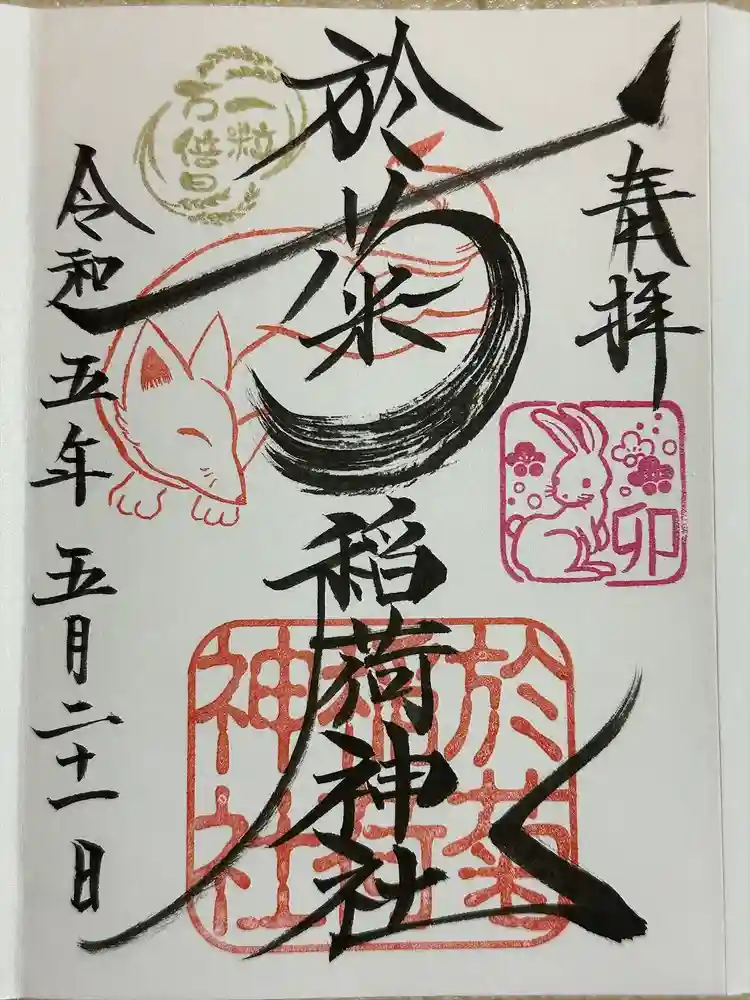 奉拝
卯
於菊稲荷神社
於菊
稲荷
神社
一粒
万倍日
令和五年五月二十一日